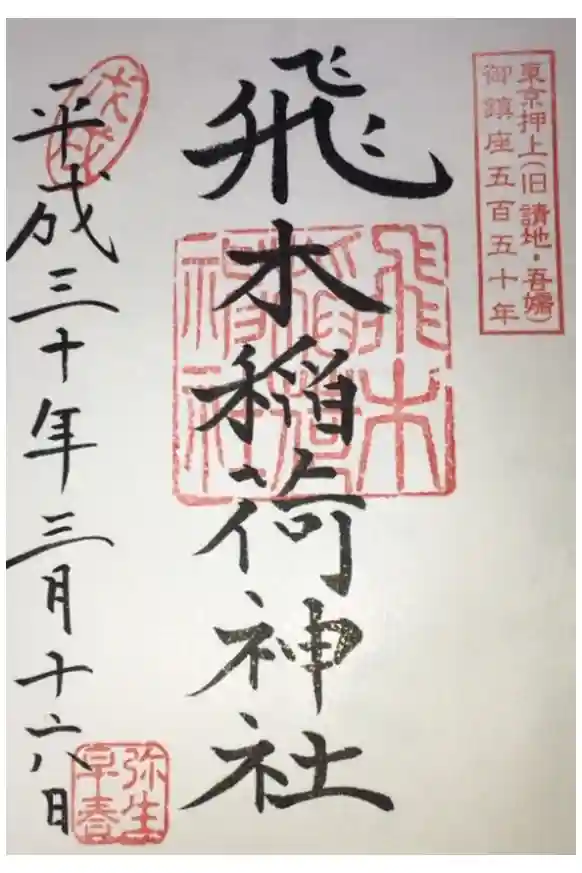 東京押上(旧請地・吾嬬)
御鎮座五百五十年
飛木稲荷神社
飛木
稲荷
神社
平成三十年三月十六日
弥生
早春